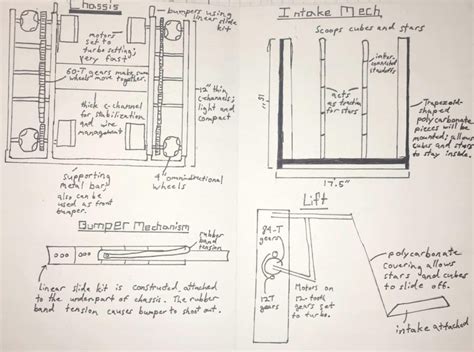 Chassis
bumpers using
linear slide
kit
motors
set to
turbo setting;
very fast
60-T gears make sure
wheels move together.
thick c-channel
for stabilization
and wire
management
12" thin
c-channels;
light and
compact
supporting
metal bar;
also can be
used as front
bumper.
4" omnidirectional
wheels
Bumper Mechanism
rubber
band
tension
linear slide kit is constructed, attached
to the underpart of chassis. The rubber
band tension causes bumper to shoot out.
Intake Mech.
Scoops cubes and stars
inter-
connected
standoffs
acts
as traction
for stars
Trapezoid-
shaped
polycarbonate
pieces will be
mounted; allows
cubes and stars
to stay inside.
17.5"
Lift
84-T
gears
12T
gears
Motors on
12-tooth
gears set
to turbo.
polycarbonate
covering allows
stars and cubes
to slide off.
intake attached